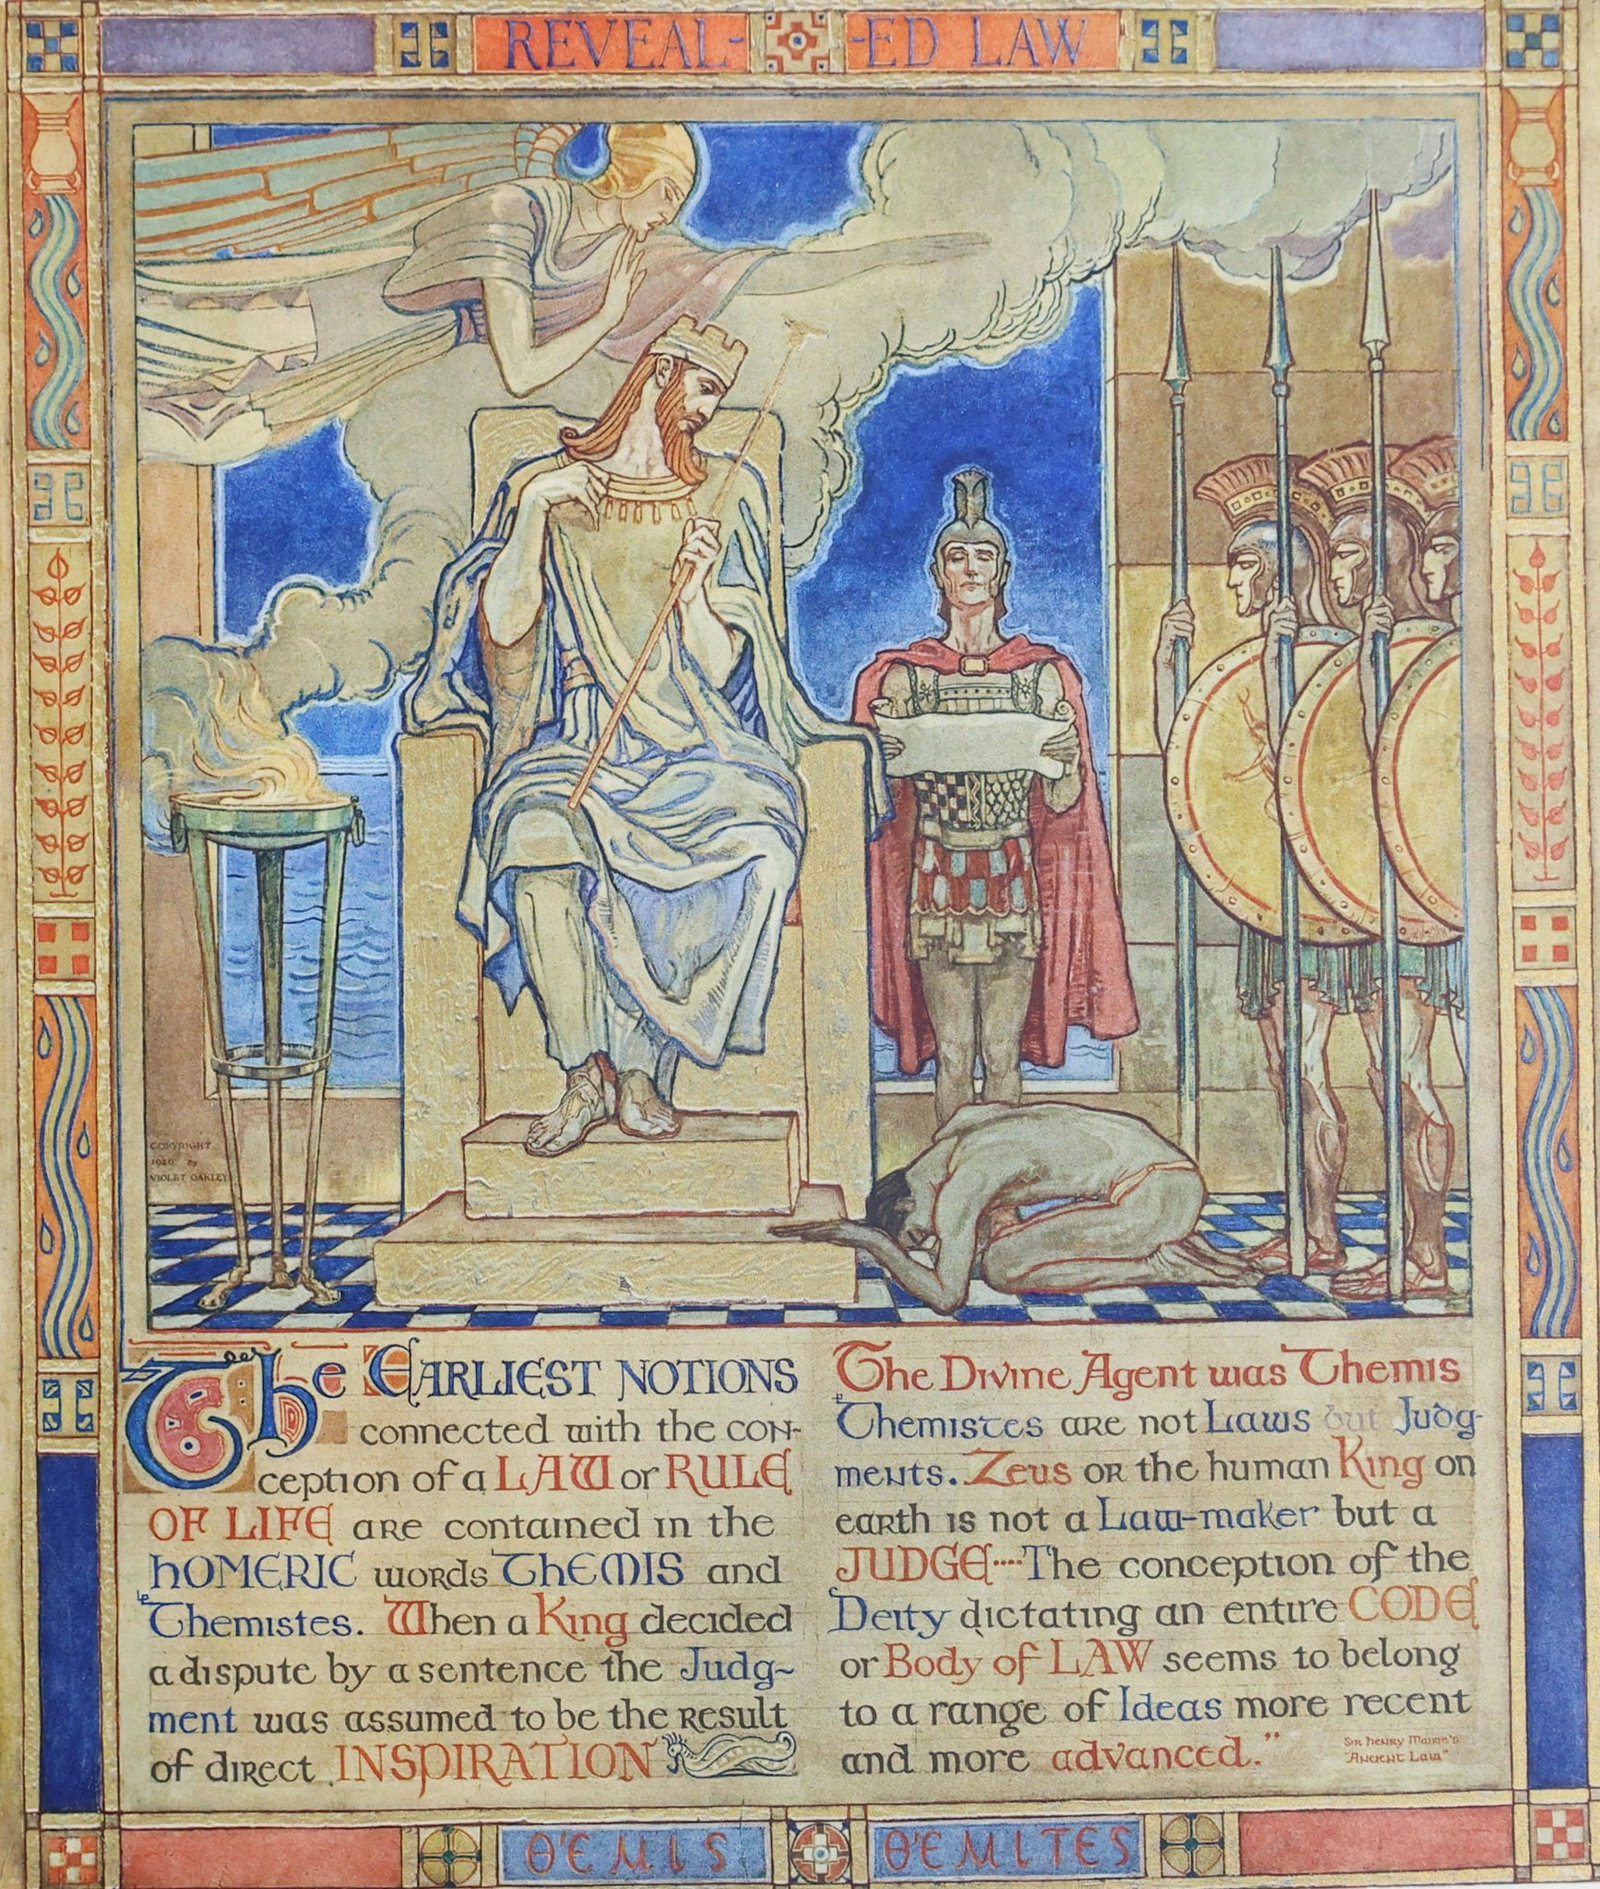 REVEAL- -ED LAW
COPYRIGHT
by
VIOLET OAKLEY
The EARLIEST NOTIONS
connected with the CON-
ception of a LAW or RULE
OF LIFE are contained in the
HOMERIC words THEMIS and
Themistes. When a King decided
a dispute by a sentence the Judg-
ment was assumed to be the Result
of direct INSPIRATION
The Divine Agent was Themis
Themistes are not Laws but Judg-
ments. Zeus or the human King on
earth is not a Law-maker but a
JUDGE····The conception of the
Deity dictating an entire CODE
or Body of LAW seems to belong
to a range of Ideas more recent
and more advanced."
Sir Henry Maine's
"Ancient Law"
Θ'ΕΜΙS Θ'ΕΜΙΤΕS